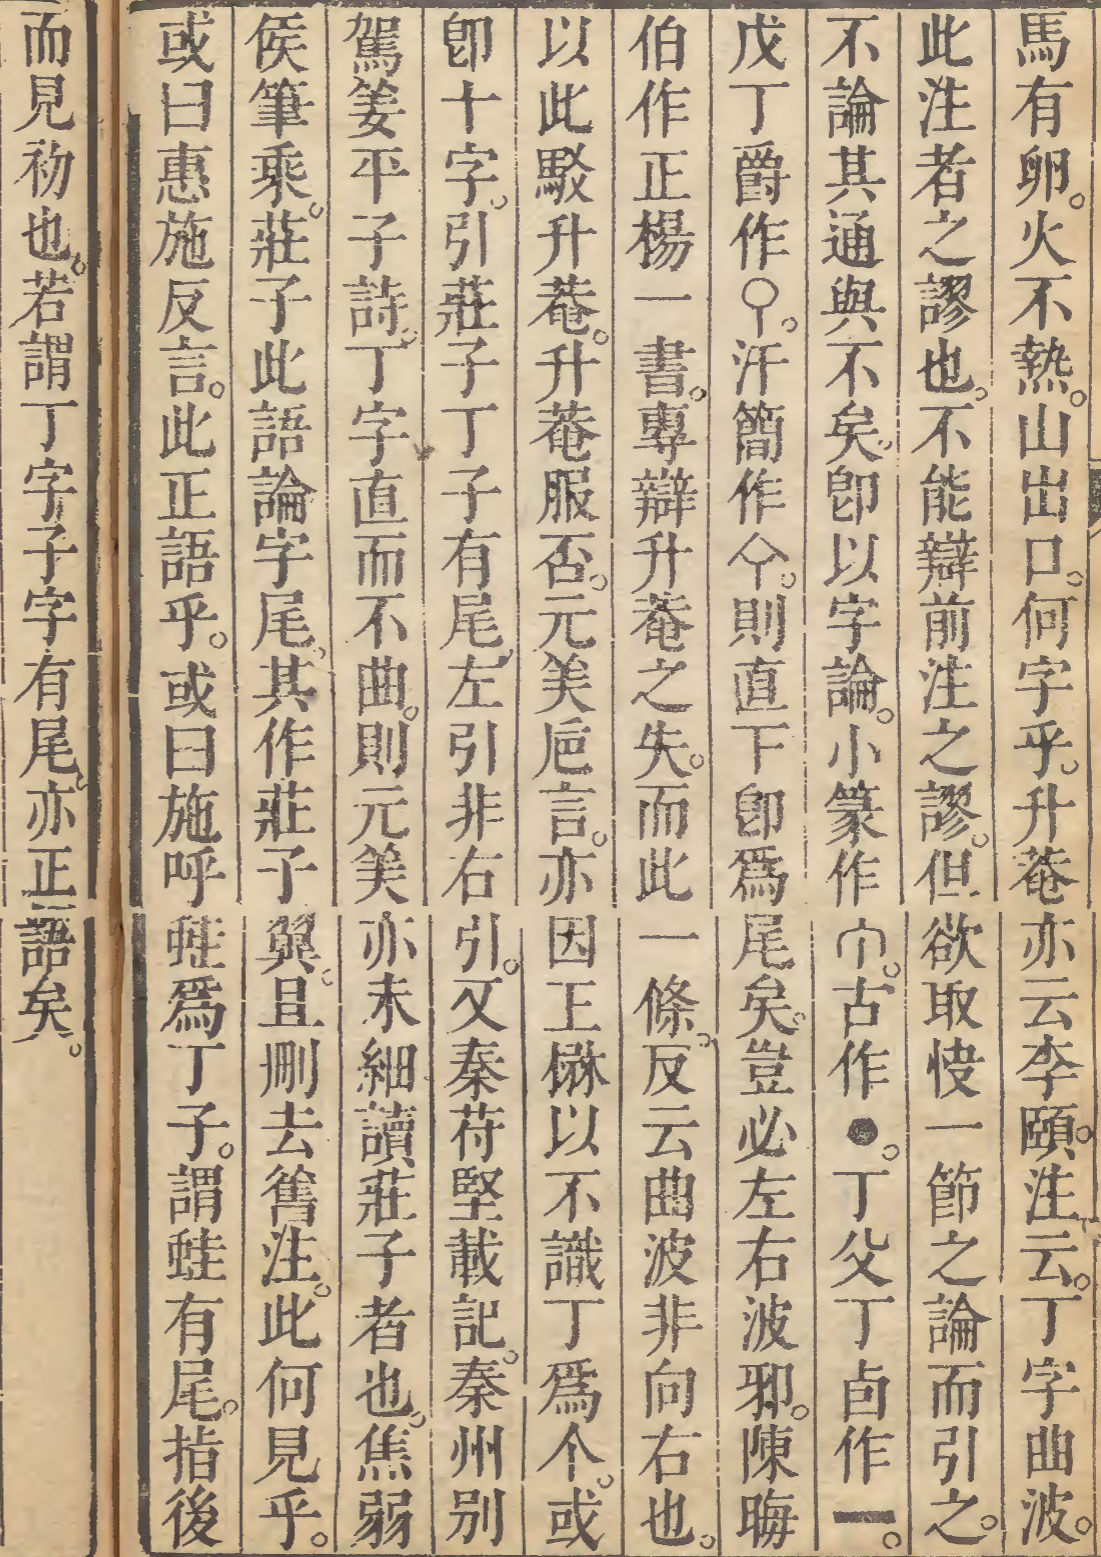 馬有卵。火不熱。山出口。何字乎。升菴亦云李頤。注云。丁字曲波。
此注者之謬也。不能辯前注之謬。但欲取快一節之論而引之。
不論其通與不矣。卽以字論。小篆作。古作●。丁父丁卣作▬。
戊丁爵作。汗簡作。則直下卽爲尾矣。豈必左右波邪。陳晦
伯作正楊一書。專辯升菴之失。而此一條。反云曲波非向右也。
以此駁升菴。升菴服否。元美巵言。亦因王楙以不識丁爲个。或
卽十字。引莊子丁子有尾。左引非右引。又秦苻堅載記。秦州別
駕姜平子詩。丁字直而不曲。則元美亦未細讀莊子者也。焦弱
侯筆乘。莊子此語論字尾。其作莊子翼。且刪去舊注。此何見乎。
或曰惠施反言。此正語乎。或曰施呼蛙爲丁子。謂蛙有尾。指後
而見初也。若謂丁字子字有尾。亦正語矣。